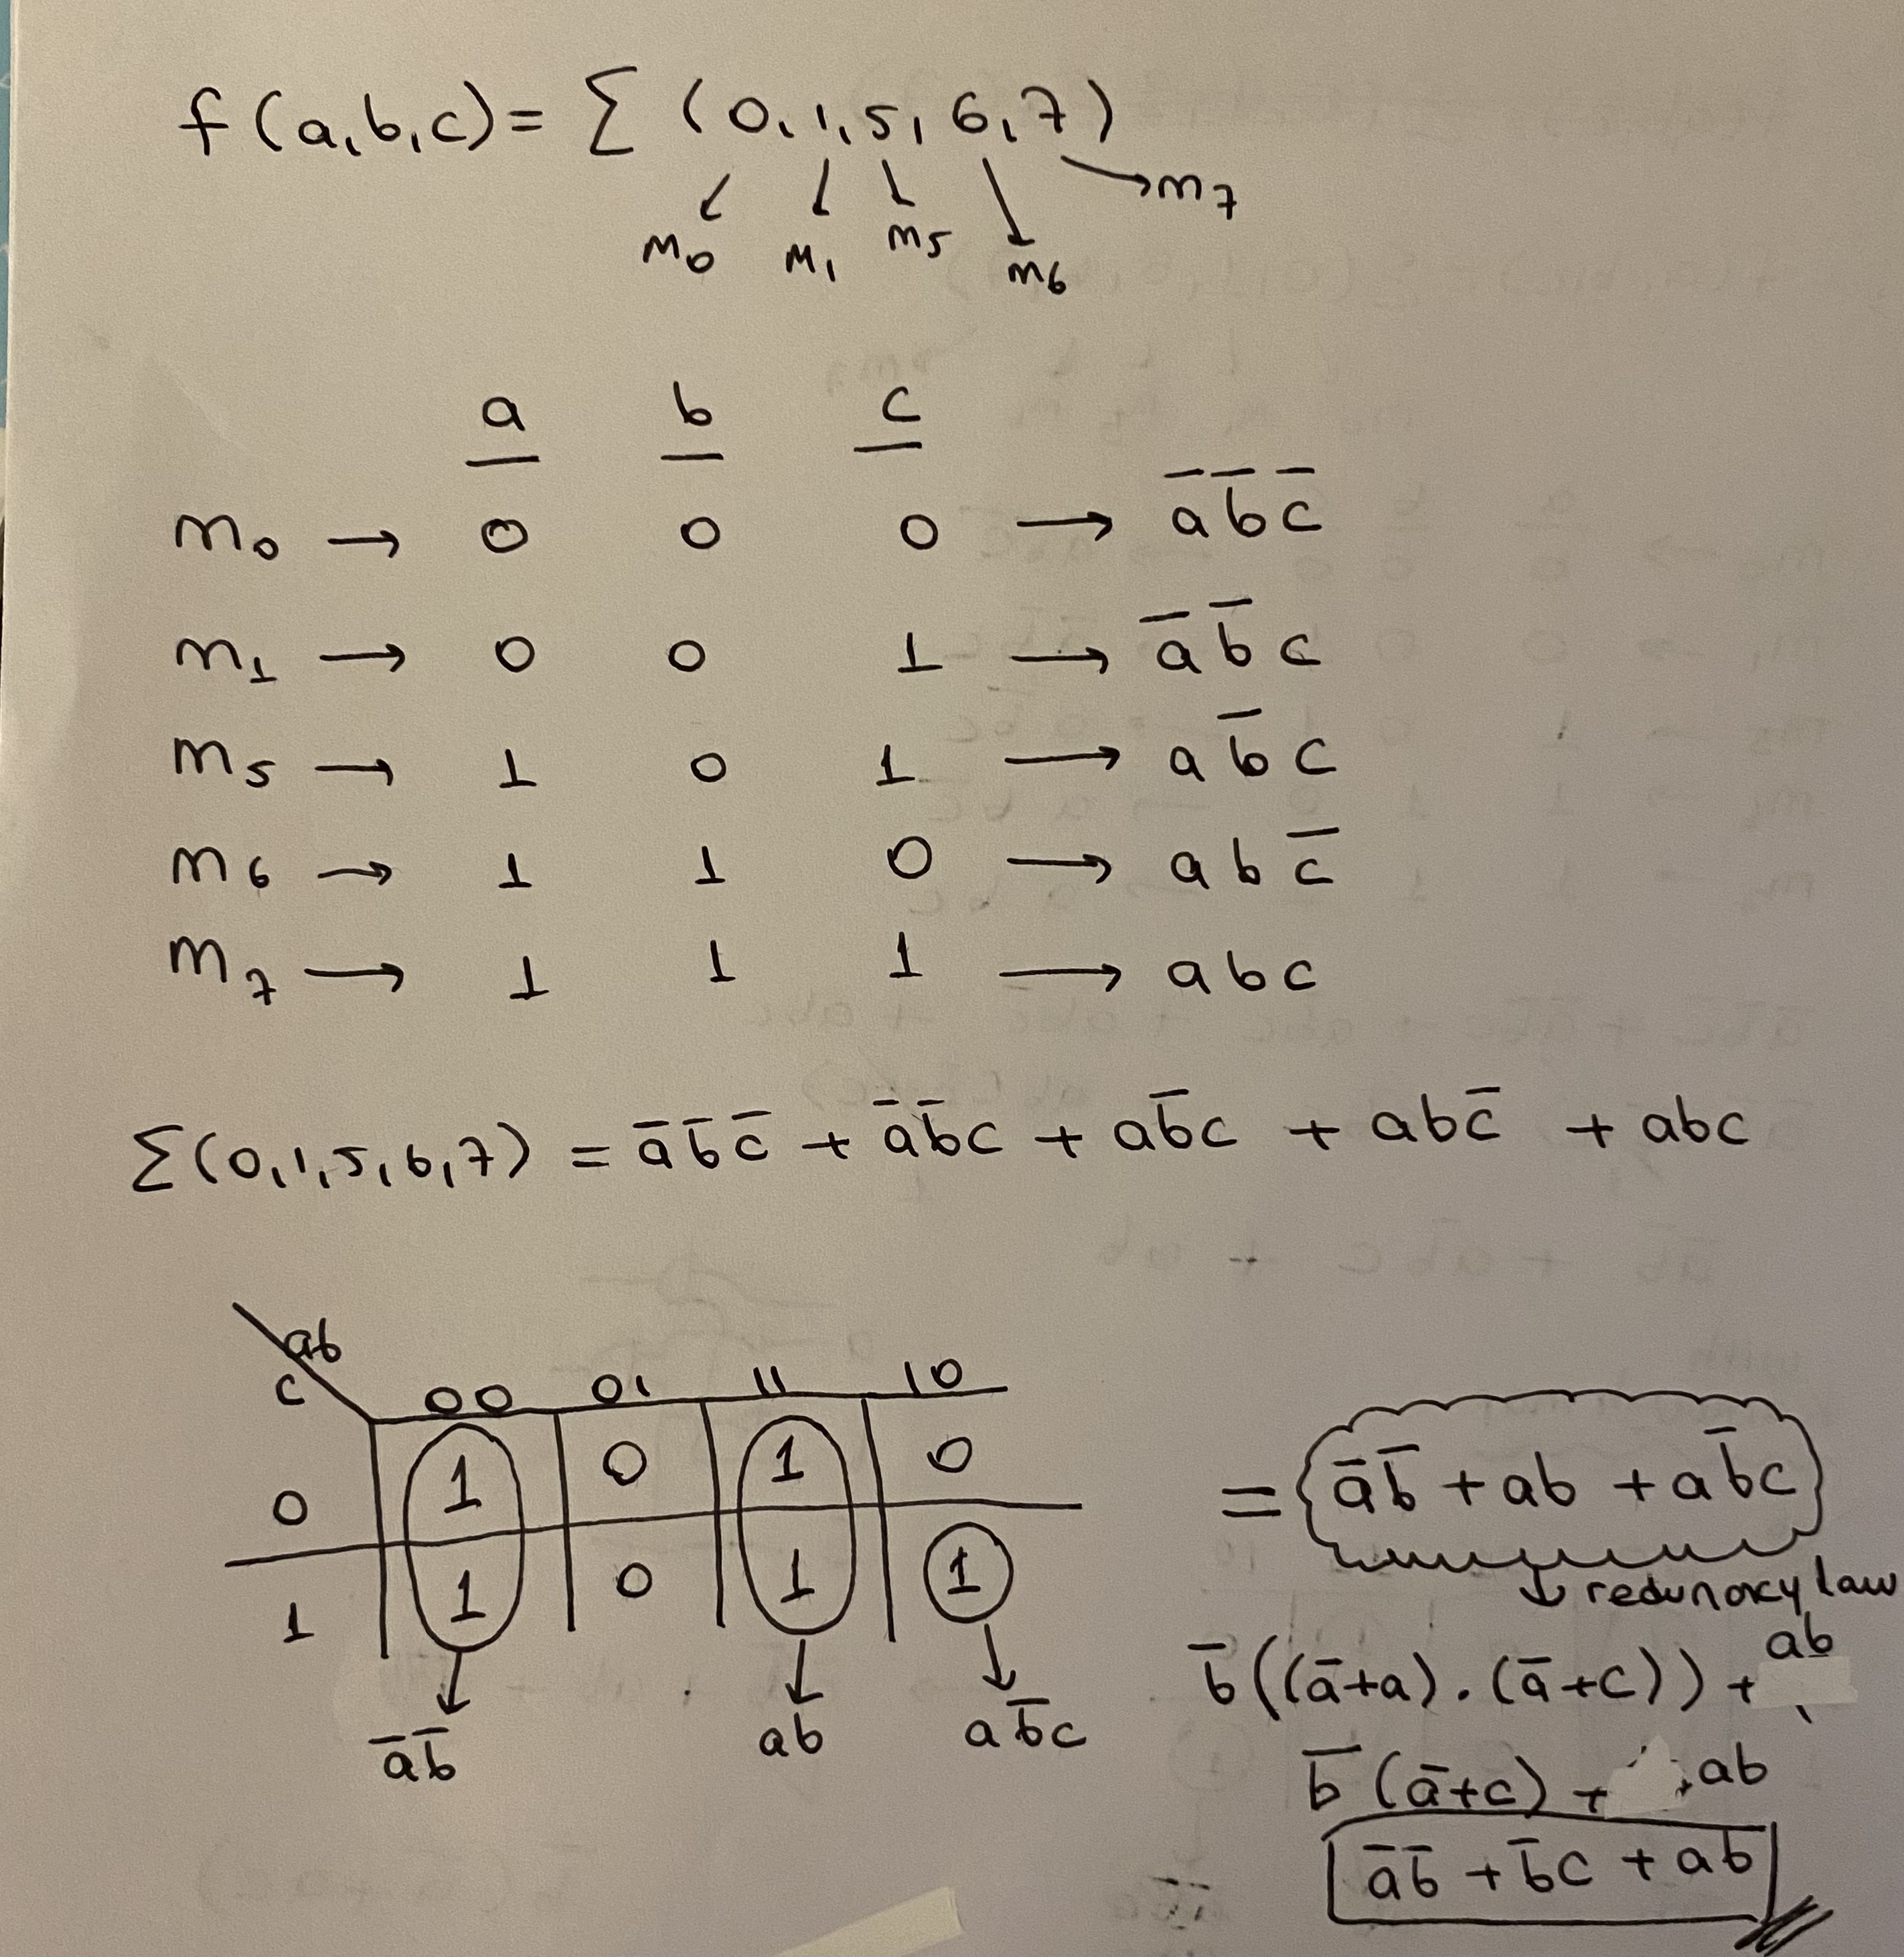 f(a,b,c) = Σ (0,1,5,6,7)
m₀ m₁ m₅ m₆ m₇
a b c
m₀ → 0 0 0 → a̅ b̅ c̅
m₁ → 0 0 1 → a̅ b̅ c
m₅ → 1 0 1 → a b̅ c
m₆ → 1 1 0 → a b c̅
m₇ → 1 1 1 → a b c
Σ(0,1,5,6,7) = a̅ b̅ c̅ + a̅ b̅ c + a b̅ c + a b c̅ + a b c
ab
c 00 01 11 10
0 1 0 1 0
1 1 0 1 1
a̅ b̅ ab a b̅ c
= a̅ b̅ + ab + a b̅ c
↓ redunoxy law
b̅ ((a̅+a) . (a̅+c)) + ab
b̅ (a̅+c) + ab
a̅ b̅ + b̅ c + ab